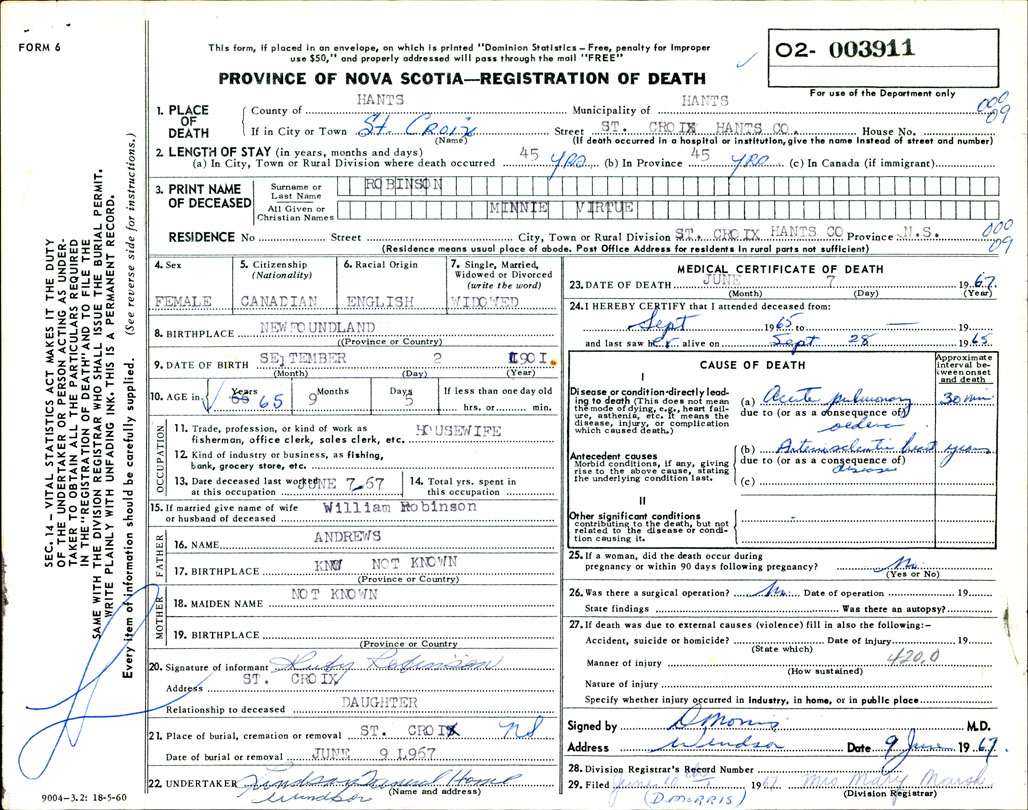 FORM 6
This form, if placed in an envelope, on which is printed "Dominion Statistics – Free, penalty for improper
use $50," and properly addressed will pass through the mail "FREE"
PROVINCE OF NOVA SCOTIA—REGISTRATION OF DEATH
02- 003911
For use of the Department only
000
09
1. PLACE OF DEATH
County of HANTS Municipality of HANTS
If in City or Town St. Croix Street ST. CROIX HANTS CO. House No.
(Name) (If death occurred in a hospital or institution, give the name instead of street and number)
2. LENGTH OF STAY (in years, months and days)
(a) In City, Town or Rural Division where death occurred 45 yrs. (b) In Province 45 yrs (c) In Canada (if immigrant)
3. PRINT NAME OF DECEASED
Surname or Last Name ROBINSON
All Given or Christian Names MINNIE VIRTUE
RESIDENCE No Street City, Town or Rural Division ST. CROIX HANTS CO Province N.S.
000
09
(Residence means usual place of abode. Post Office Address for residents in rural parts not sufficient)
4. Sex
FEMALE
5. Citizenship
(Nationality)
CANADIAN
6. Racial Origin
ENGLISH
7. Single, Married,
Widowed or Divorced
(write the word)
WIDOWED
8. BIRTHPLACE NEWFOUNDLAND
(Province or Country)
9. DATE OF BIRTH SETEMBER 2 1901.
(Month) (Day) (Year)
10. AGE in Years 65 Months 9 Days 5 If less than one day old
hrs. or min.
OCCUPATION
11. Trade, profession, or kind of work as HOUSEWIFE
fisherman, office clerk, sales clerk, etc.
12. Kind of industry or business, as fishing,
bank, grocery store, etc.
13. Date deceased last worked JUNE 7 67
at this occupation
14. Total yrs. spent in
this occupation
15. If married give name of wife William Robinson
or husband of deceased
FATHER
16. NAME ANDREWS
17. BIRTHPLACE NOT KNOWN
(Province or Country)
MOTHER
18. MAIDEN NAME NOT KNOWN
19. BIRTHPLACE
(Province or Country
20. Signature of informant Ruby Robinson
Address ST. CROIX
Relationship to deceased DAUGHTER
21. Place of burial, cremation or removal ST. CROIX NS
Date of burial or removal JUNE 9 L967
22. UNDERTAKER Lindsay Funeral Home
Windsor (Name and address)
MEDICAL CERTIFICATE OF DEATH
23. DATE OF DEATH JUNE 7 1967.
(Month) (Day) (Year)
24. I HEREBY CERTIFY that I attended deceased from:
Sept 1965 to — 19
and last saw her alive on Sept 28 1965
CAUSE OF DEATH
Approximate
interval be-
tween onset
and death
I
Disease or condition directly lead-
ing to death (This does not mean
the mode of dying, e.g., heart fail-
ure, asthenia, etc. It means the
disease, injury, or complication
which caused death.)
(a) Acute pulmonary 30 min
due to (or as a consequence of)
oedema
Antecedent causes
Morbid conditions, if any, giving
rise to the above cause, stating
the underlying condition last.
(b) Arteriosclerotic heart years
due to (or as a consequence of)
disease
(c)
II
Other significant conditions
contributing to the death, but not
related to the disease or condi-
tion causing it.
25. If a woman, did the death occur during
pregnancy or within 90 days following pregnancy? No
(Yes or No)
26. Was there a surgical operation? No Date of operation 19
State findings Was there an autopsy?
27. If death was due to external causes (violence) fill in also the following:–
Accident, suicide or homicide? Date of injury 19
(State which)
Manner of injury 420.0
(How sustained)
Nature of injury
Specify whether injury occurred in industry, in home, or in public place
Signed by D Morris M.D.
Address Windsor Date 9 June 1967.
28. Division Registrar's Record Number
29. Filed June 10th 1967 Mrs Mary Marsh
(D. MORRIS) (Division Registrar)
SEC. 14 – VITAL STATISTICS ACT MAKES IT THE DUTY
OF THE UNDERTAKER OR PERSON ACTING AS UNDER-
TAKER TO OBTAIN ALL THE PARTICULARS REQUIRED
IN THE "REGISTRATION OF DEATH" AND TO FILE THE
SAME WITH THE DIVISION REGISTRAR WHO SHALL ISSUE THE BURIAL PERMIT.
WRITE PLAINLY WITH UNFADING INK. THIS IS A PERMANENT RECORD.
Every item of information should be carefully supplied. (See reverse side for instructions.)
9004–3.2: 18-5-60